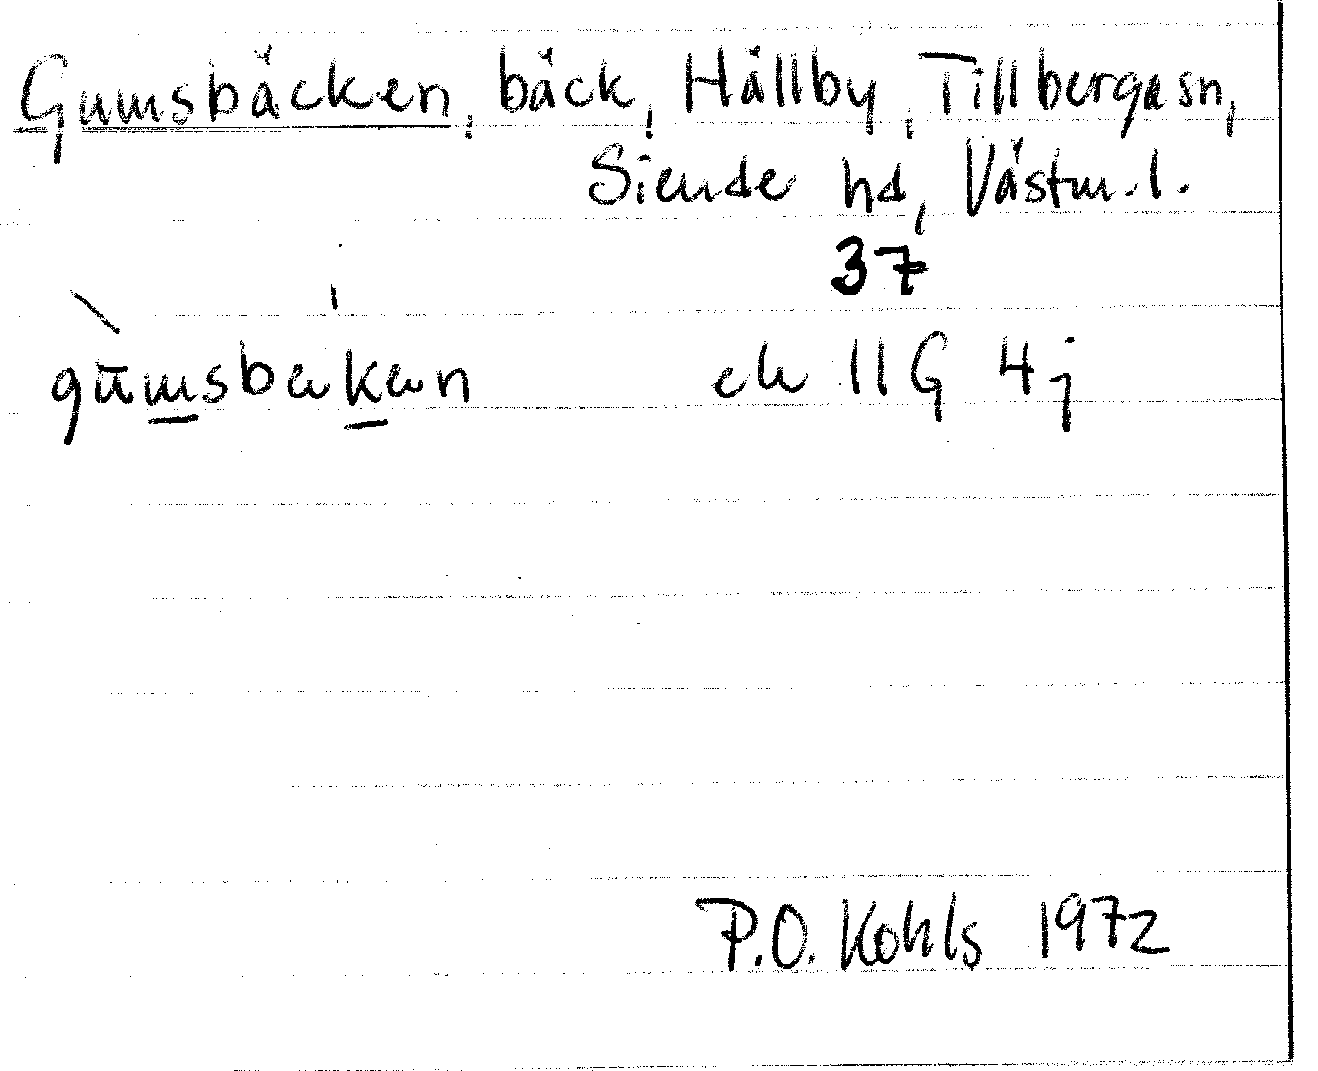 Gumsbäcken, bäck, Hällby, Tillberga sn,
Siende hd, Västm. l.
37
gūmsbækæn ek 11G 4j
P.O. Kohls 1972